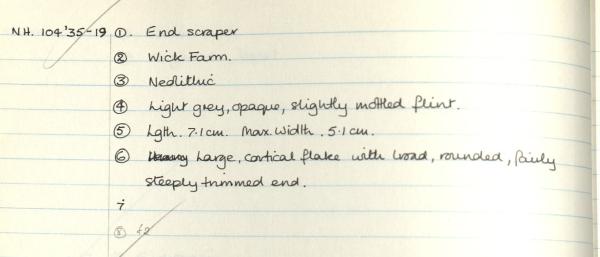 NH. 104'35-19 ①. End scraper
② Wick Farm.
③ Neolithic
④ Light grey, opaque, slightly mottled flint.
⑤ Lgth. 7.1cm. Max. Width. 5.1cm.
⑥ Large, cortical flake with broad, rounded, fairly
steeply trimmed end.
7
⑧ £2